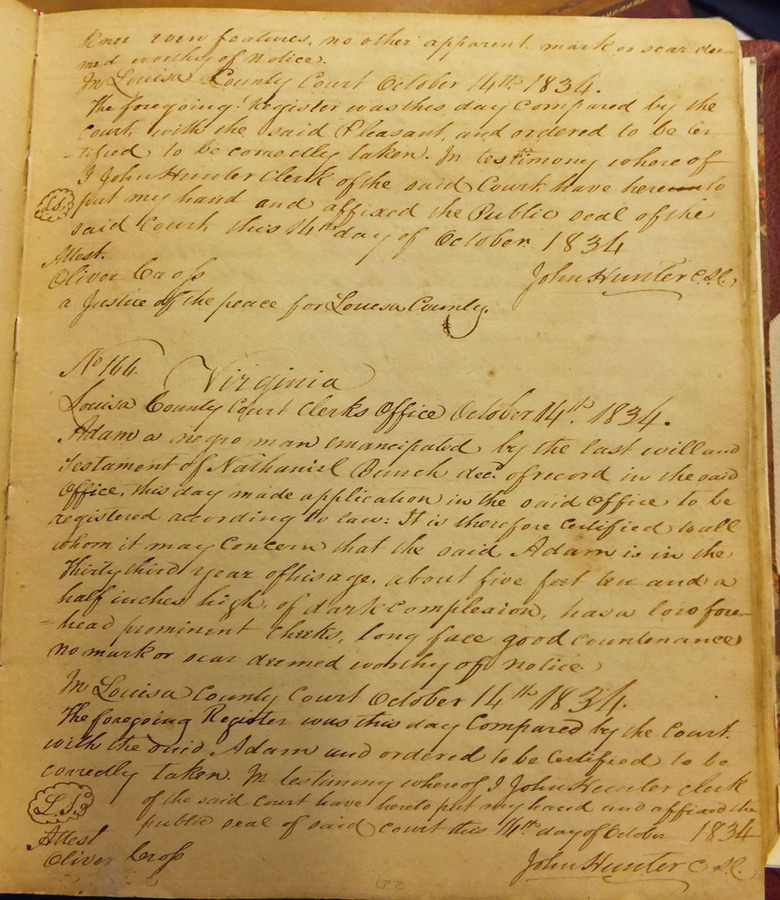 even features, no other apparent mark or scar dee-
med worthy of notice.
In Louisa County Court October 14th 1834.
The foregoing Register was this day compared by the
Court, with the said Pleasant, and ordered to be cer-
-tified to be correctly taken. In testimony whereof
I John Hunter Clerk of the said Court have hereunto
L.S. put my hand and affixed the Public seal of the
said Court this 14th day of October 1834
Attest.
Oliver Cross John Hunter C.L.C.
a Justice of the peace for Louisa County.
No 166. Virginia
Louisa County Court Clerks Office October 14th 1834.
Adam a negro man emancipated by the last will and
Testament of Nathaniel Bunch decd. of record in the said
Office, this day made application in the said Office to be
registered according to law: It is therefore certified to all
whom it may Concern that the said Adam is in the
Thirty third year of his age, about five feet ten and a
half inches high, of dark complexion, has a low fore-
-head prominent cheeks, long face good countenance
no mark or scar deemed worthy of notice.
In Louisa County Court October 14th 1834.
The foregoing Register was this day Compared by the Court
with the said Adam and ordered to be Certified to be
correctly taken. In testimony whereof I John Hunter clerk
L.S. of the said Court have hereto put my hand and affixed the
public seal of said court this 14th day of October 1834
Attest
Oliver Cross John Hunter C.L.C.